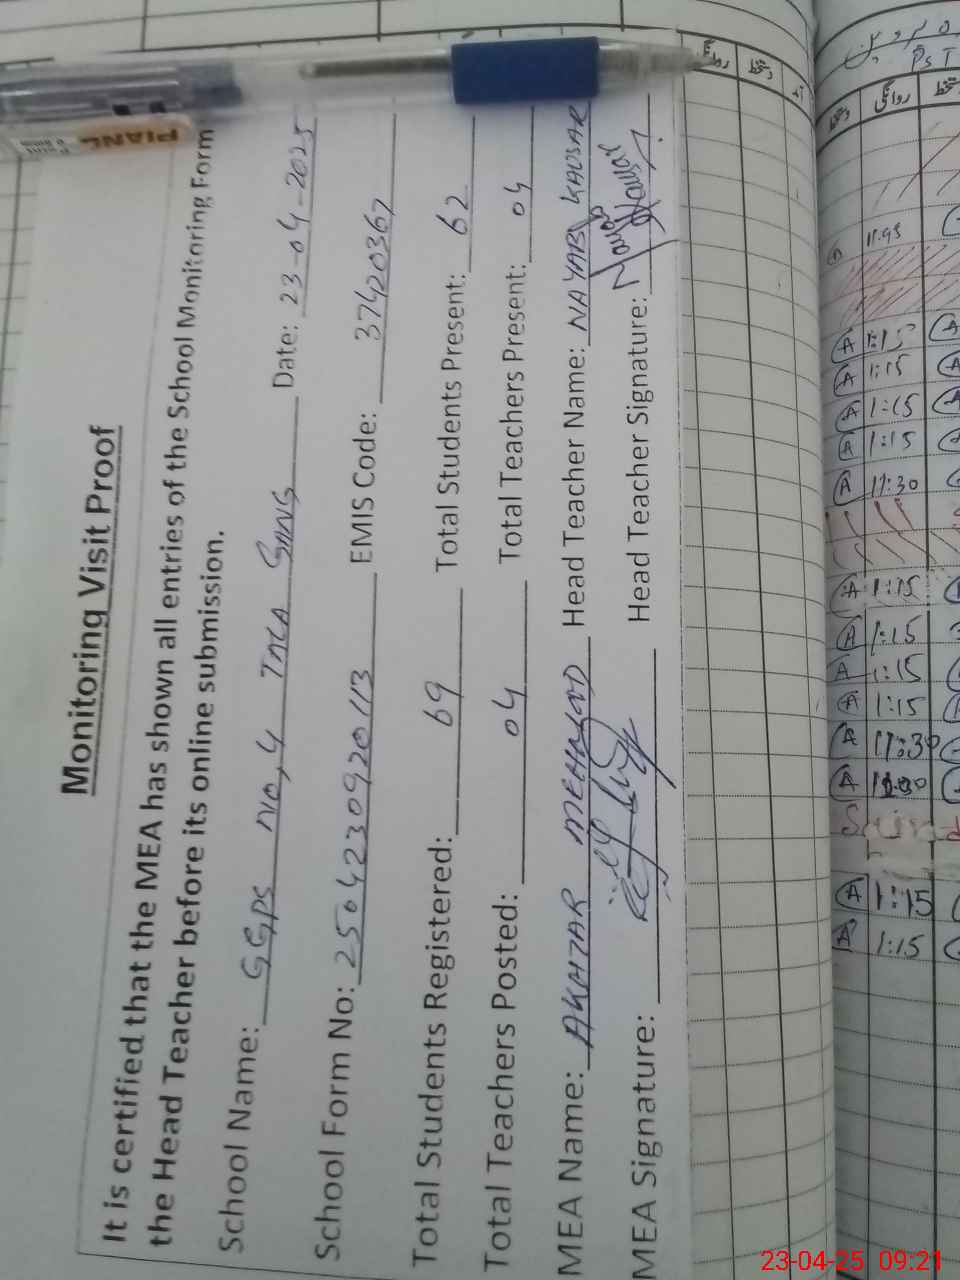 Monitoring Visit Proof
It is certified that the MEA has shown all entries of the School Monitoring Form
the Head Teacher before its online submission.
School Name: GGPS NO, 4 TALA GANG Date: 23-04-2025
School Form No: 25042309920113 EMIS Code: 37420367
Total Students Registered: 69 Total Students Present: 62
Total Teachers Posted: 04 Total Teachers Present: 04
MEA Name: AKHTAR MEHMOOD Head Teacher Name: NAYAB KAUSAR
MEA Signature: Head Teacher Signature: Nayab Kausar
PIANO
Point
PST
روانگی
11.45
A 1:15
A 1:15
A 1:15
A 1:15
A 11:30
A 1:15
A 1:15
A 1:15
A 1:15
A 11:30
A 11:30
A 1:15
A 1:15
23-04-25 09:21